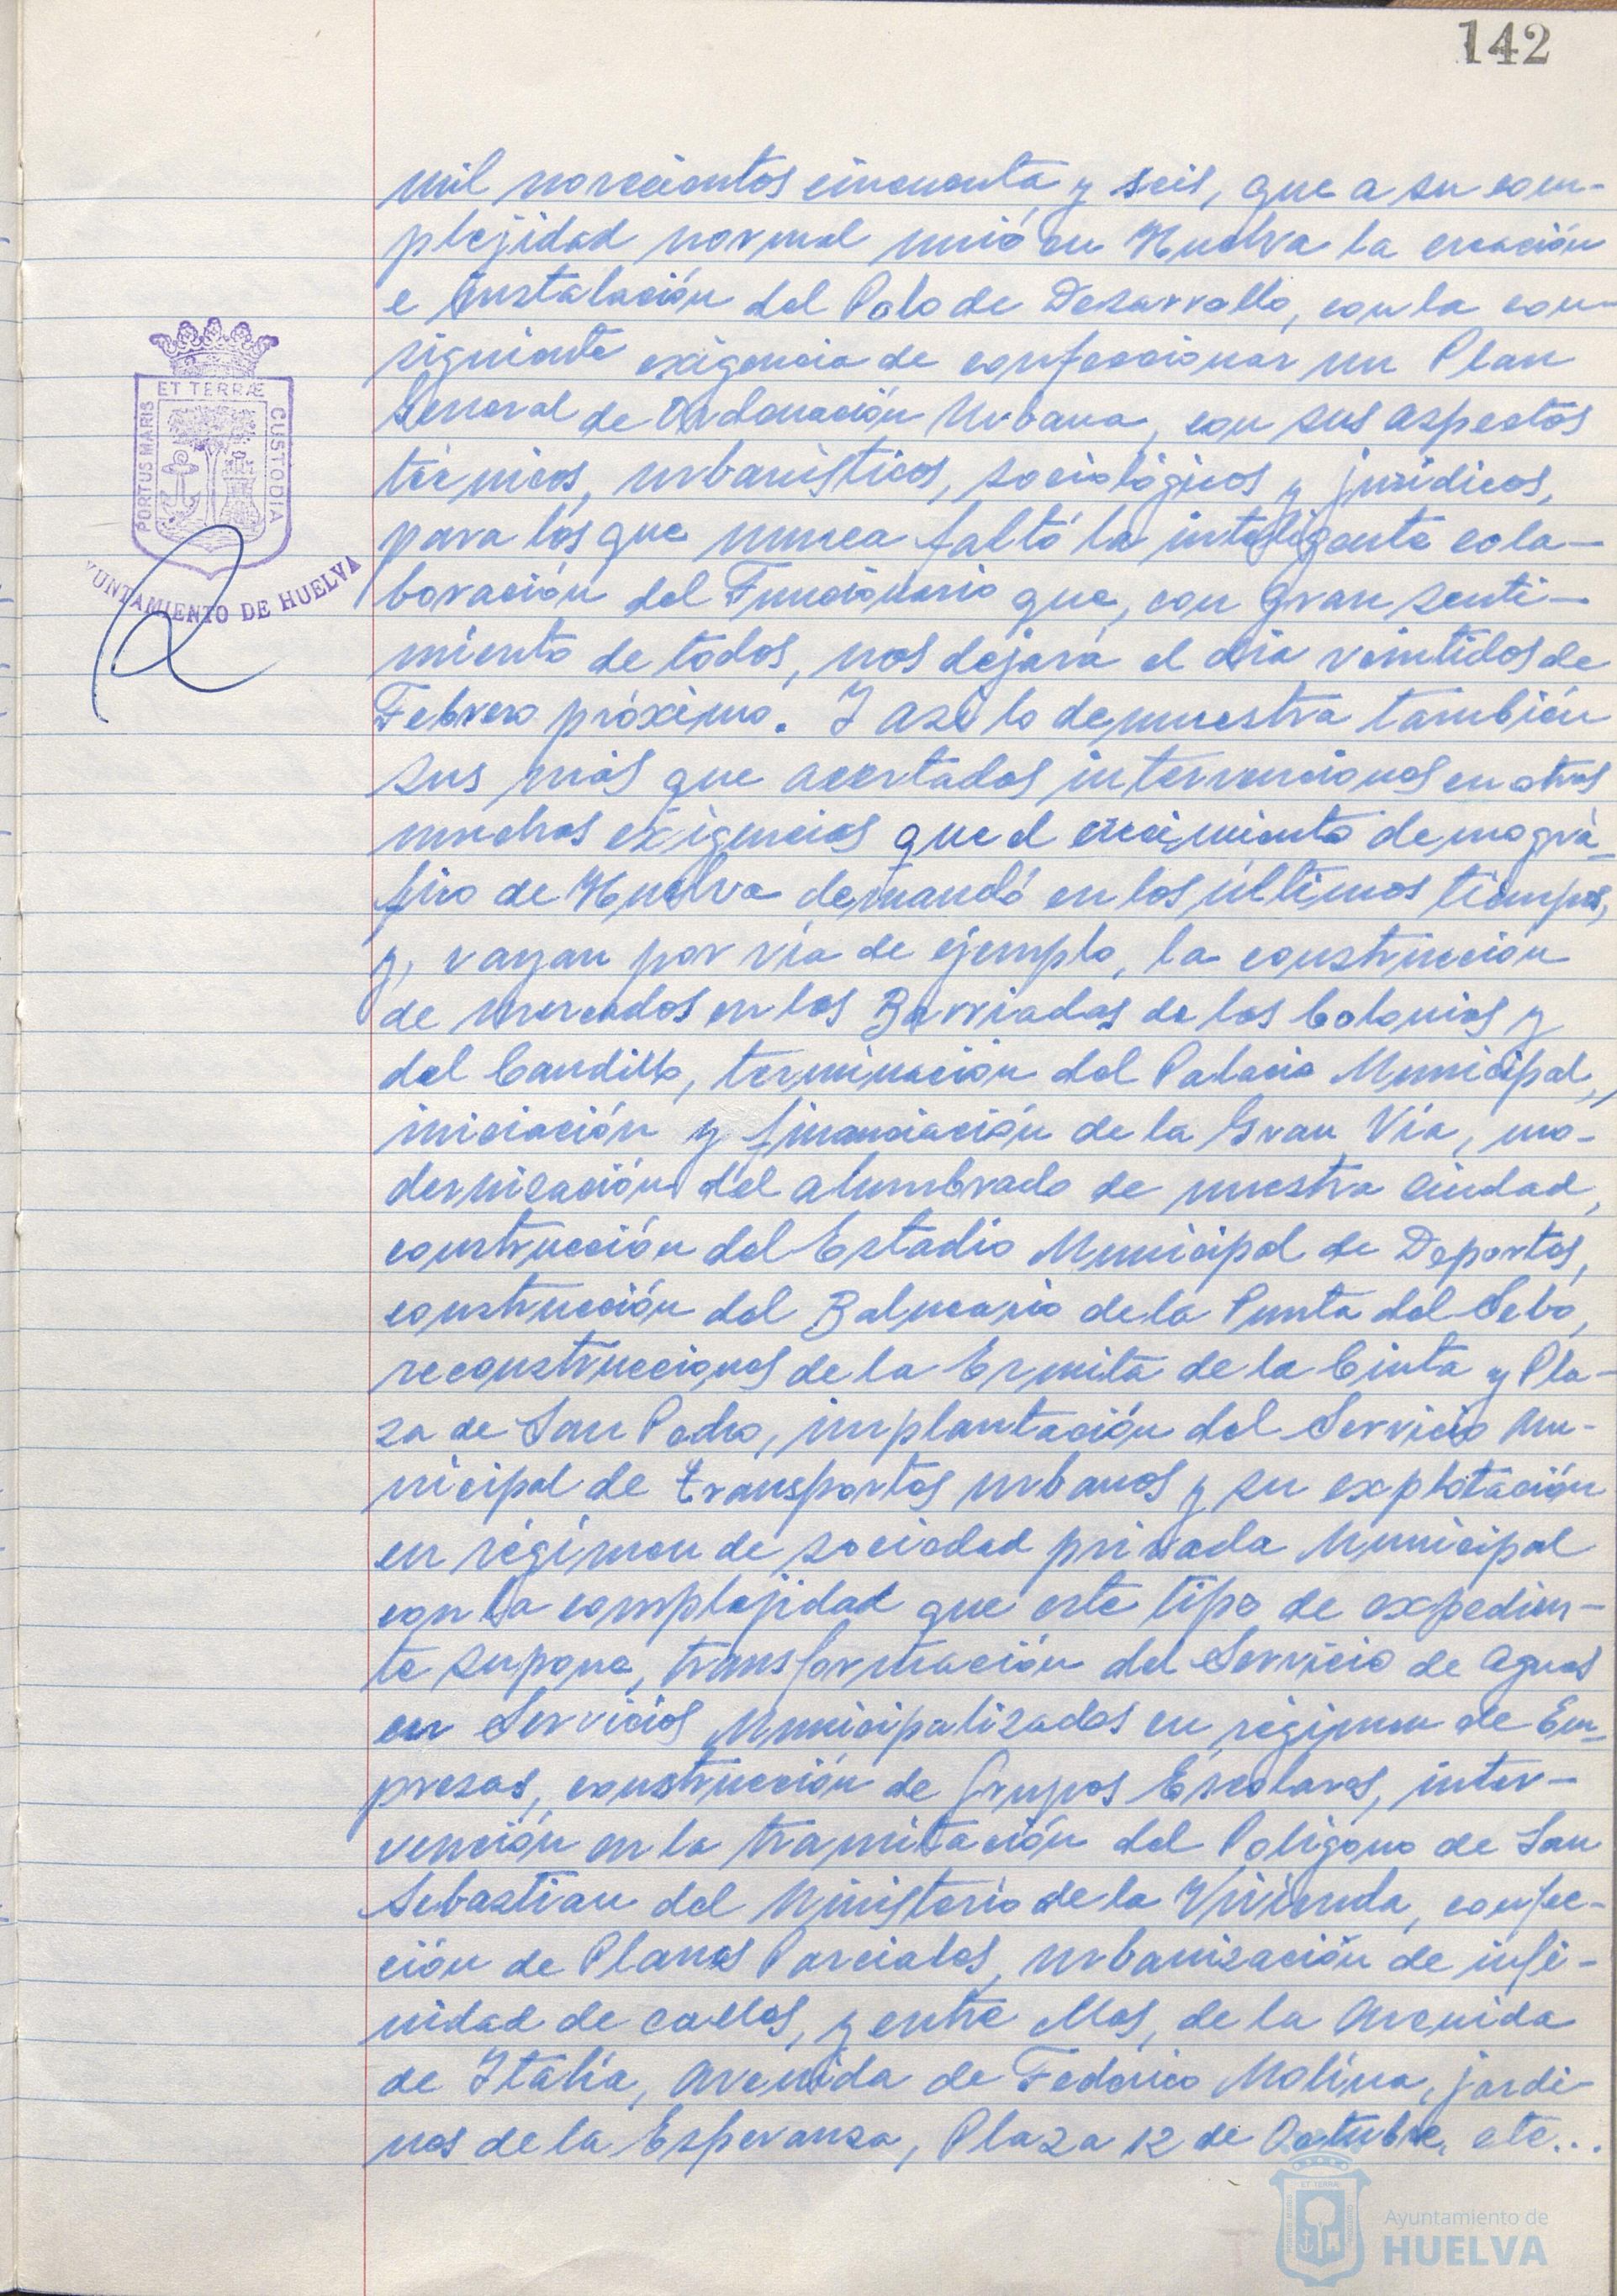 142
mil novecientos cincuenta y seis, que a su com-
plejidad normal unió en Huelva la creación
e instalación del Polo de Desarrollo, con la con-
siguiente exigencia de confeccionar un Plan
General de Ordenación Urbana, con sus aspectos
técnicos, urbanísticos, sociológicos y jurídicos,
para los que nunca faltó la inteligente cola-
boración del Funcionario que, con gran senti-
miento de todos, nos dejará el día veintidos de
Febrero próximo. Y asi lo demuestra también
sus más que acertadas intervenciones en otras
muchas exigencias que el crecimiento demográ-
fico de Huelva demandó en los últimos tiempos,
y, vayan por vía de ejemplo, la construcción
de mercados en las Barriadas de las Colonias y
del Caudillo, terminación del Palacio Municipal,
iniciación y financiación de la Gran Vía, mo-
dernización del alumbrado de nuestra ciudad,
construcción del Estadio Municipal de Deportes,
construcción del Balneario de la Punta del Sebo,
reconstrucciones de la Ermita de la Cinta y Pla-
za de San Pedro, implantación del Servicio Mu-
nicipal de transportes urbanos y su explotación
en régimen de sociedad privada Municipal
con la complejidad que este tipo de expedien-
te supone, transformación del Servicio de aguas
en Servicios Municipalizados en régimen de Em-
presas, construcción de Grupos Escolares, inter-
vención en la tramitación del Polígono de San
Sebastian del Ministerio de la Vivienda, confec-
ción de Planes Parciales, urbanización de infi-
nidad de calles, y entre ellas, de la Avenida
de Italia, Avenida de Federico Molina, jardi-
nes de la Esperanza, Plaza 12 de Octubre, etc...
ET TERRÆ
PORTUS MARIS
CUSTODIA
YUNTAMIENTO DE HUELVA
Ayuntamiento de
HUELVA